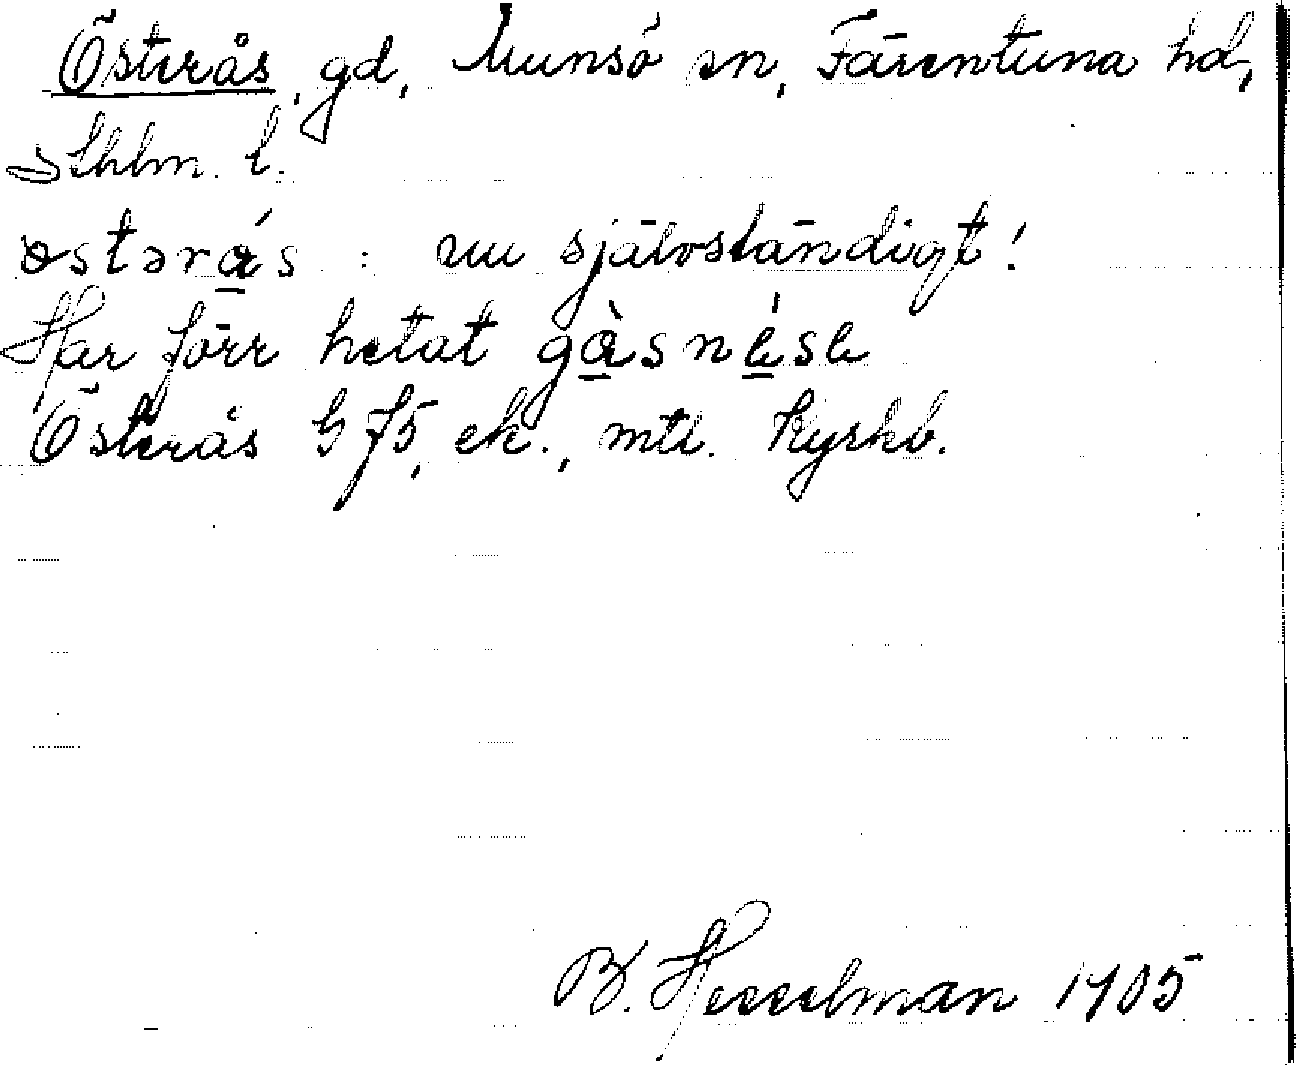 Österås, gd, Munsö sn, Färentuna hd,
Sthlm. l.
østərås : nu självständigt!
Har förr hetat gåsnése
Österås G 75, ek., mtl. Kyrkb.
B. Hesselman 1905